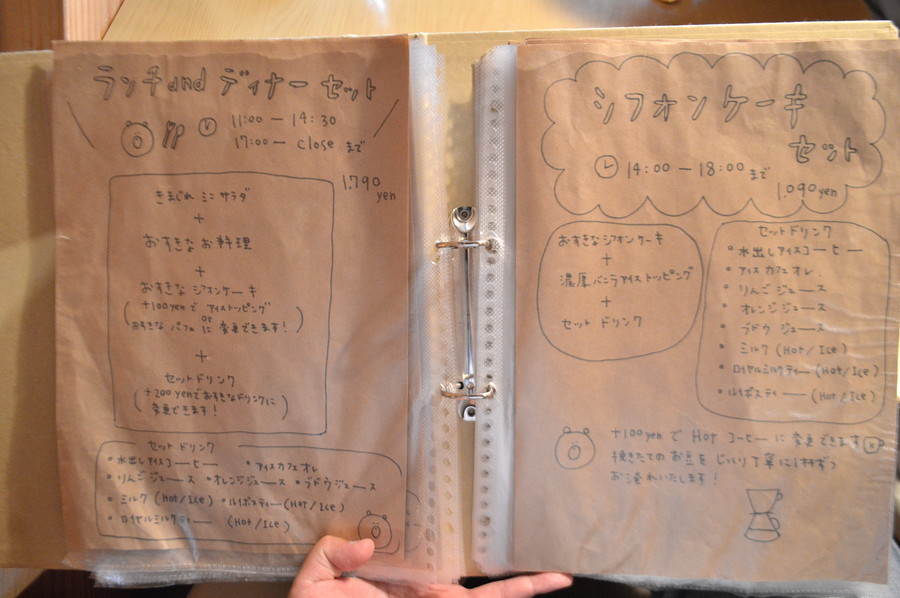 ランチand ディナーセット
11:00 — 14:30
17:00 — closeまで
1,790
yen
きまぐれ ミニサラダ
+
おすきなお料理
+
おすきなシフォンケーキ
(+100yenで アイストッピング
or
おすきな パフェに変更できます!)
+
セットドリンク
(+200yenでおすきなドリンクに
変更できます!)
セットドリンク
・水出しアイスコーヒー ・アイスカフェオレ
・りんごジュース ・オレンジジュース ・ブドウジュース
・ミルク(Hot/Ice) ・ルイボスティー(Hot/Ice)
・ロイヤルミルクティー (Hot/Ice)
シフォンケーキ
セット
14:00 — 18:00まで
1,090yen
おすきなシフォンケーキ
+
濃厚バニラアイストッピング
+
セットドリンク
セットドリンク
・水出しアイスコーヒー
・アイスカフェオレ
・りんごジュース
・オレンジジュース
・ブドウジュース
・ミルク(Hot/Ice)
・ロイヤルミルクティー(Hot/Ice)
・ルイボスティー(Hot/Ice)
+100yenでHotコーヒーに変更できます
挽きたてのお豆をじっくり丁寧に1杯ずつ
お淹れいたします!